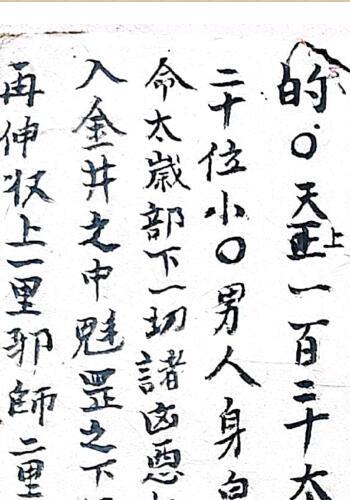 的〇天正上一百二十大
二十位小〇男人身皇
命太歲部下一切諸凶惡
入金井之中魁罡之下
再伸收上一里邪師二里